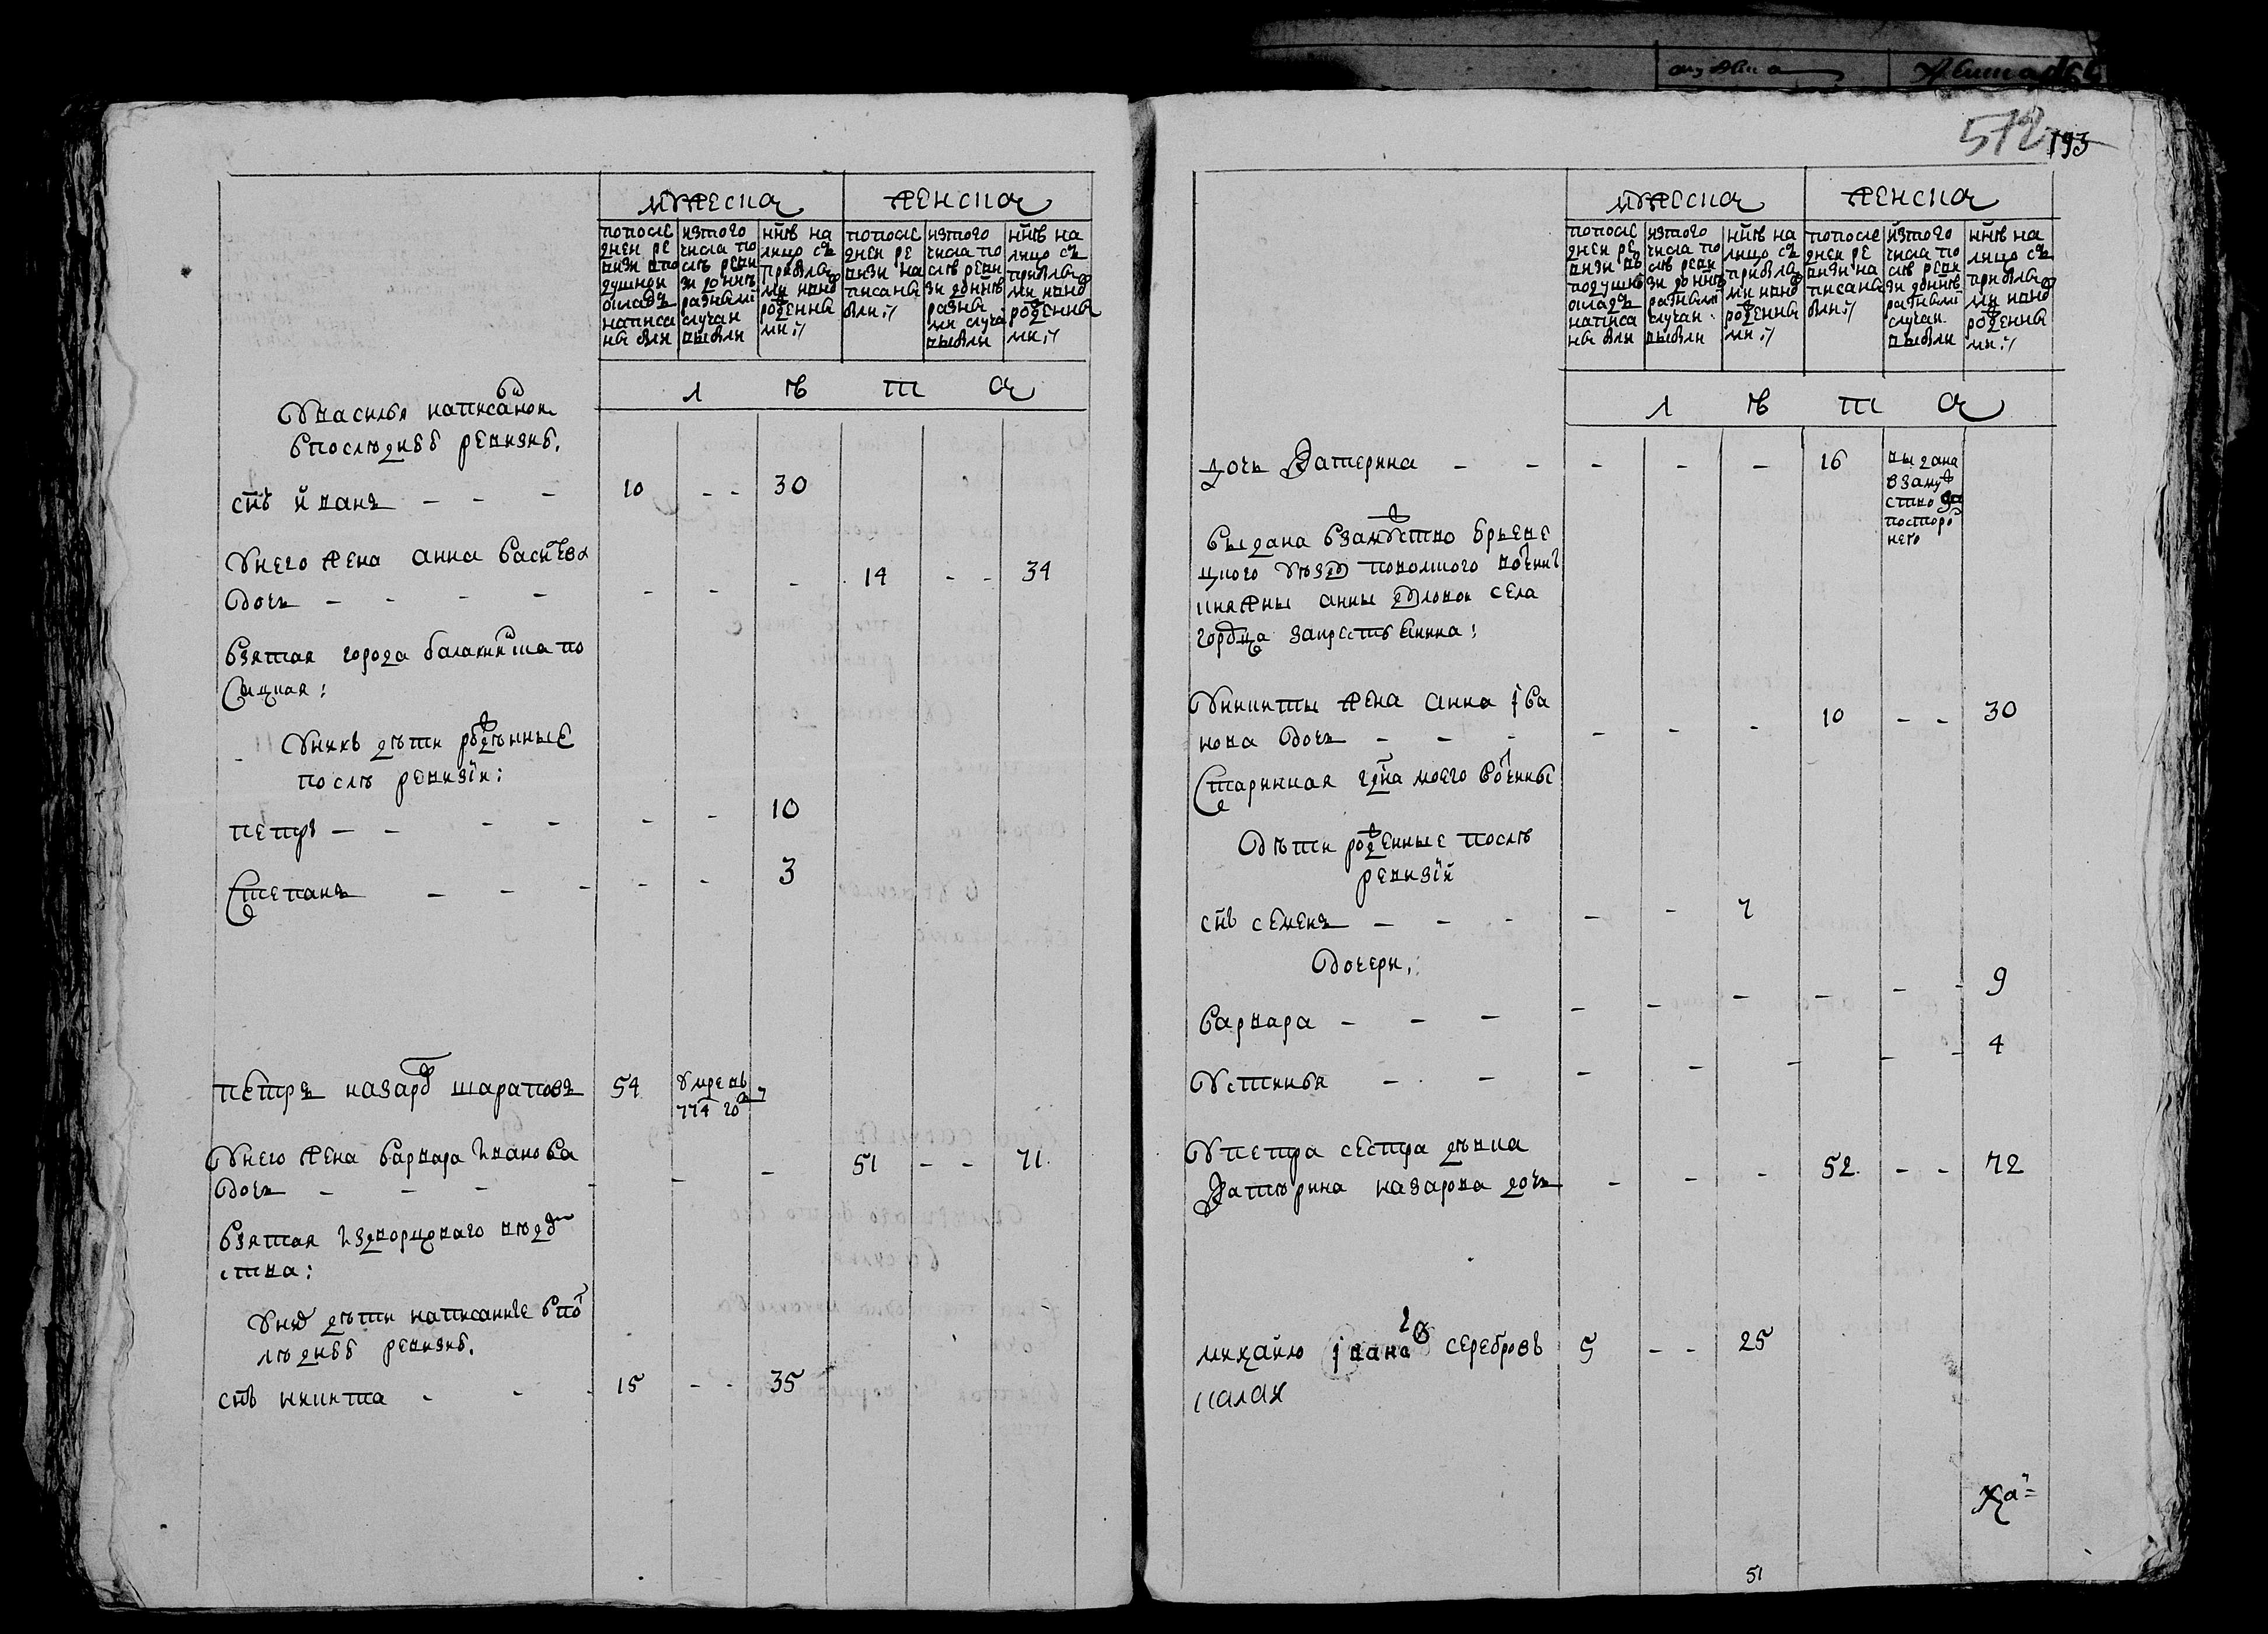 мужеска
женска
по после
дней ре
визи в по
душной
окладъ
написа
ны были
изтого
числа по
слѣ реви
зи до ннѣ
разными
случаи
выбыли
ннѣ на
лицо съ
прибылы
ми и вно
рожденны
ми
по после
дней ре
визи на
писаны
были
изтого
числа по
слѣ реви
зи до ннѣ
разны
ми случаи
выбыли
ннѣ на
лицо съ
прибылы
ми и вно
рожденны
ми
л ѣ т а
У василья написаной
в послѣднеѣ ревизиѣ.
снъ иванъ - - - 10 - - 30
У него жена анна васильева
дочь - - - - - - - 14 - - 34
взятая города балахни
У нихъ дѣти рожденные
послѣ ревизіи:
петръ - - - - - - 10
Степанъ - - - - - 3
петръ назаровъ шараповъ 54 умре въ
774 годъ
У него жена варвара иванова
дочь - - - - - - 51 - - 71
взятая из дворцоваго вѣдом
ства:
У ней дѣти написанные в по
слѣднеѣ ревизиѣ.
снъ никита - - - 15 - - 35
572 193
мужеска
женска
по после
дней ре
визи въ
подушно
окладъ
написа
ны были
изтого
числа по
слѣ реви
зи до ннѣ
разными
случаи
выбыли
ннѣ на
лицо съ
прибылы
ми и вно
рожденны
ми
по после
дней ре
визи на
писаны
были
изтого
числа по
слѣ реви
зи до ннѣ
разными
случаи
выбыли
ннѣ на
лицо съ
прибылы
ми и вно
рожденны
ми
л ѣ т а
дочь Катерина - - - - - 16 выдана
в замуж
ство за
посторо
него
выдана в замужство
села
за крестьянина:
У никиты жена анна іва
нова дочь - - - - - - 10 - - 30
Старинная гдна моего вотчины
Дѣти рожденные послѣ
ревизій
снъ семенъ - - - - - 7
Дочери:
варвара - - - - - - - - - 9
Устинья - - - - - - - 4
У петра сестра дѣвка
Катерина назарова дочь - - - 52 - - 72
михайло івановъ серебровъ 5 - - 25
51